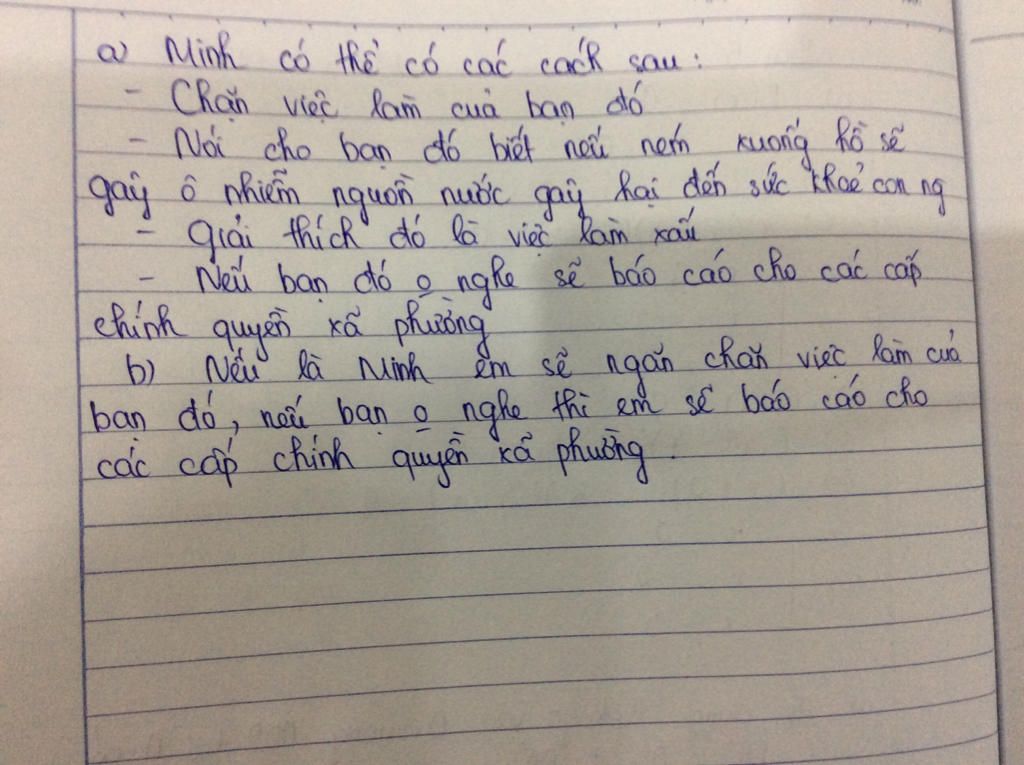 a) Minh có thể có các cách sau:
- Chặn việc làm của bạn đó
- Nói cho bạn đó biết nếu ném xuống hồ sẽ
gây ô nhiễm nguồn nước gây hại đến sức khoẻ con ng
- Giải thích đó là việc làm xấu
- Nếu bạn đó o nghe sẽ báo cáo cho các cấp
chính quyền xã phường
b) Nếu là Minh em sẽ ngăn chặn việc làm của
bạn đó, nếu bạn o nghe thì em sẽ báo cáo cho
các cấp chính quyền xã phường.